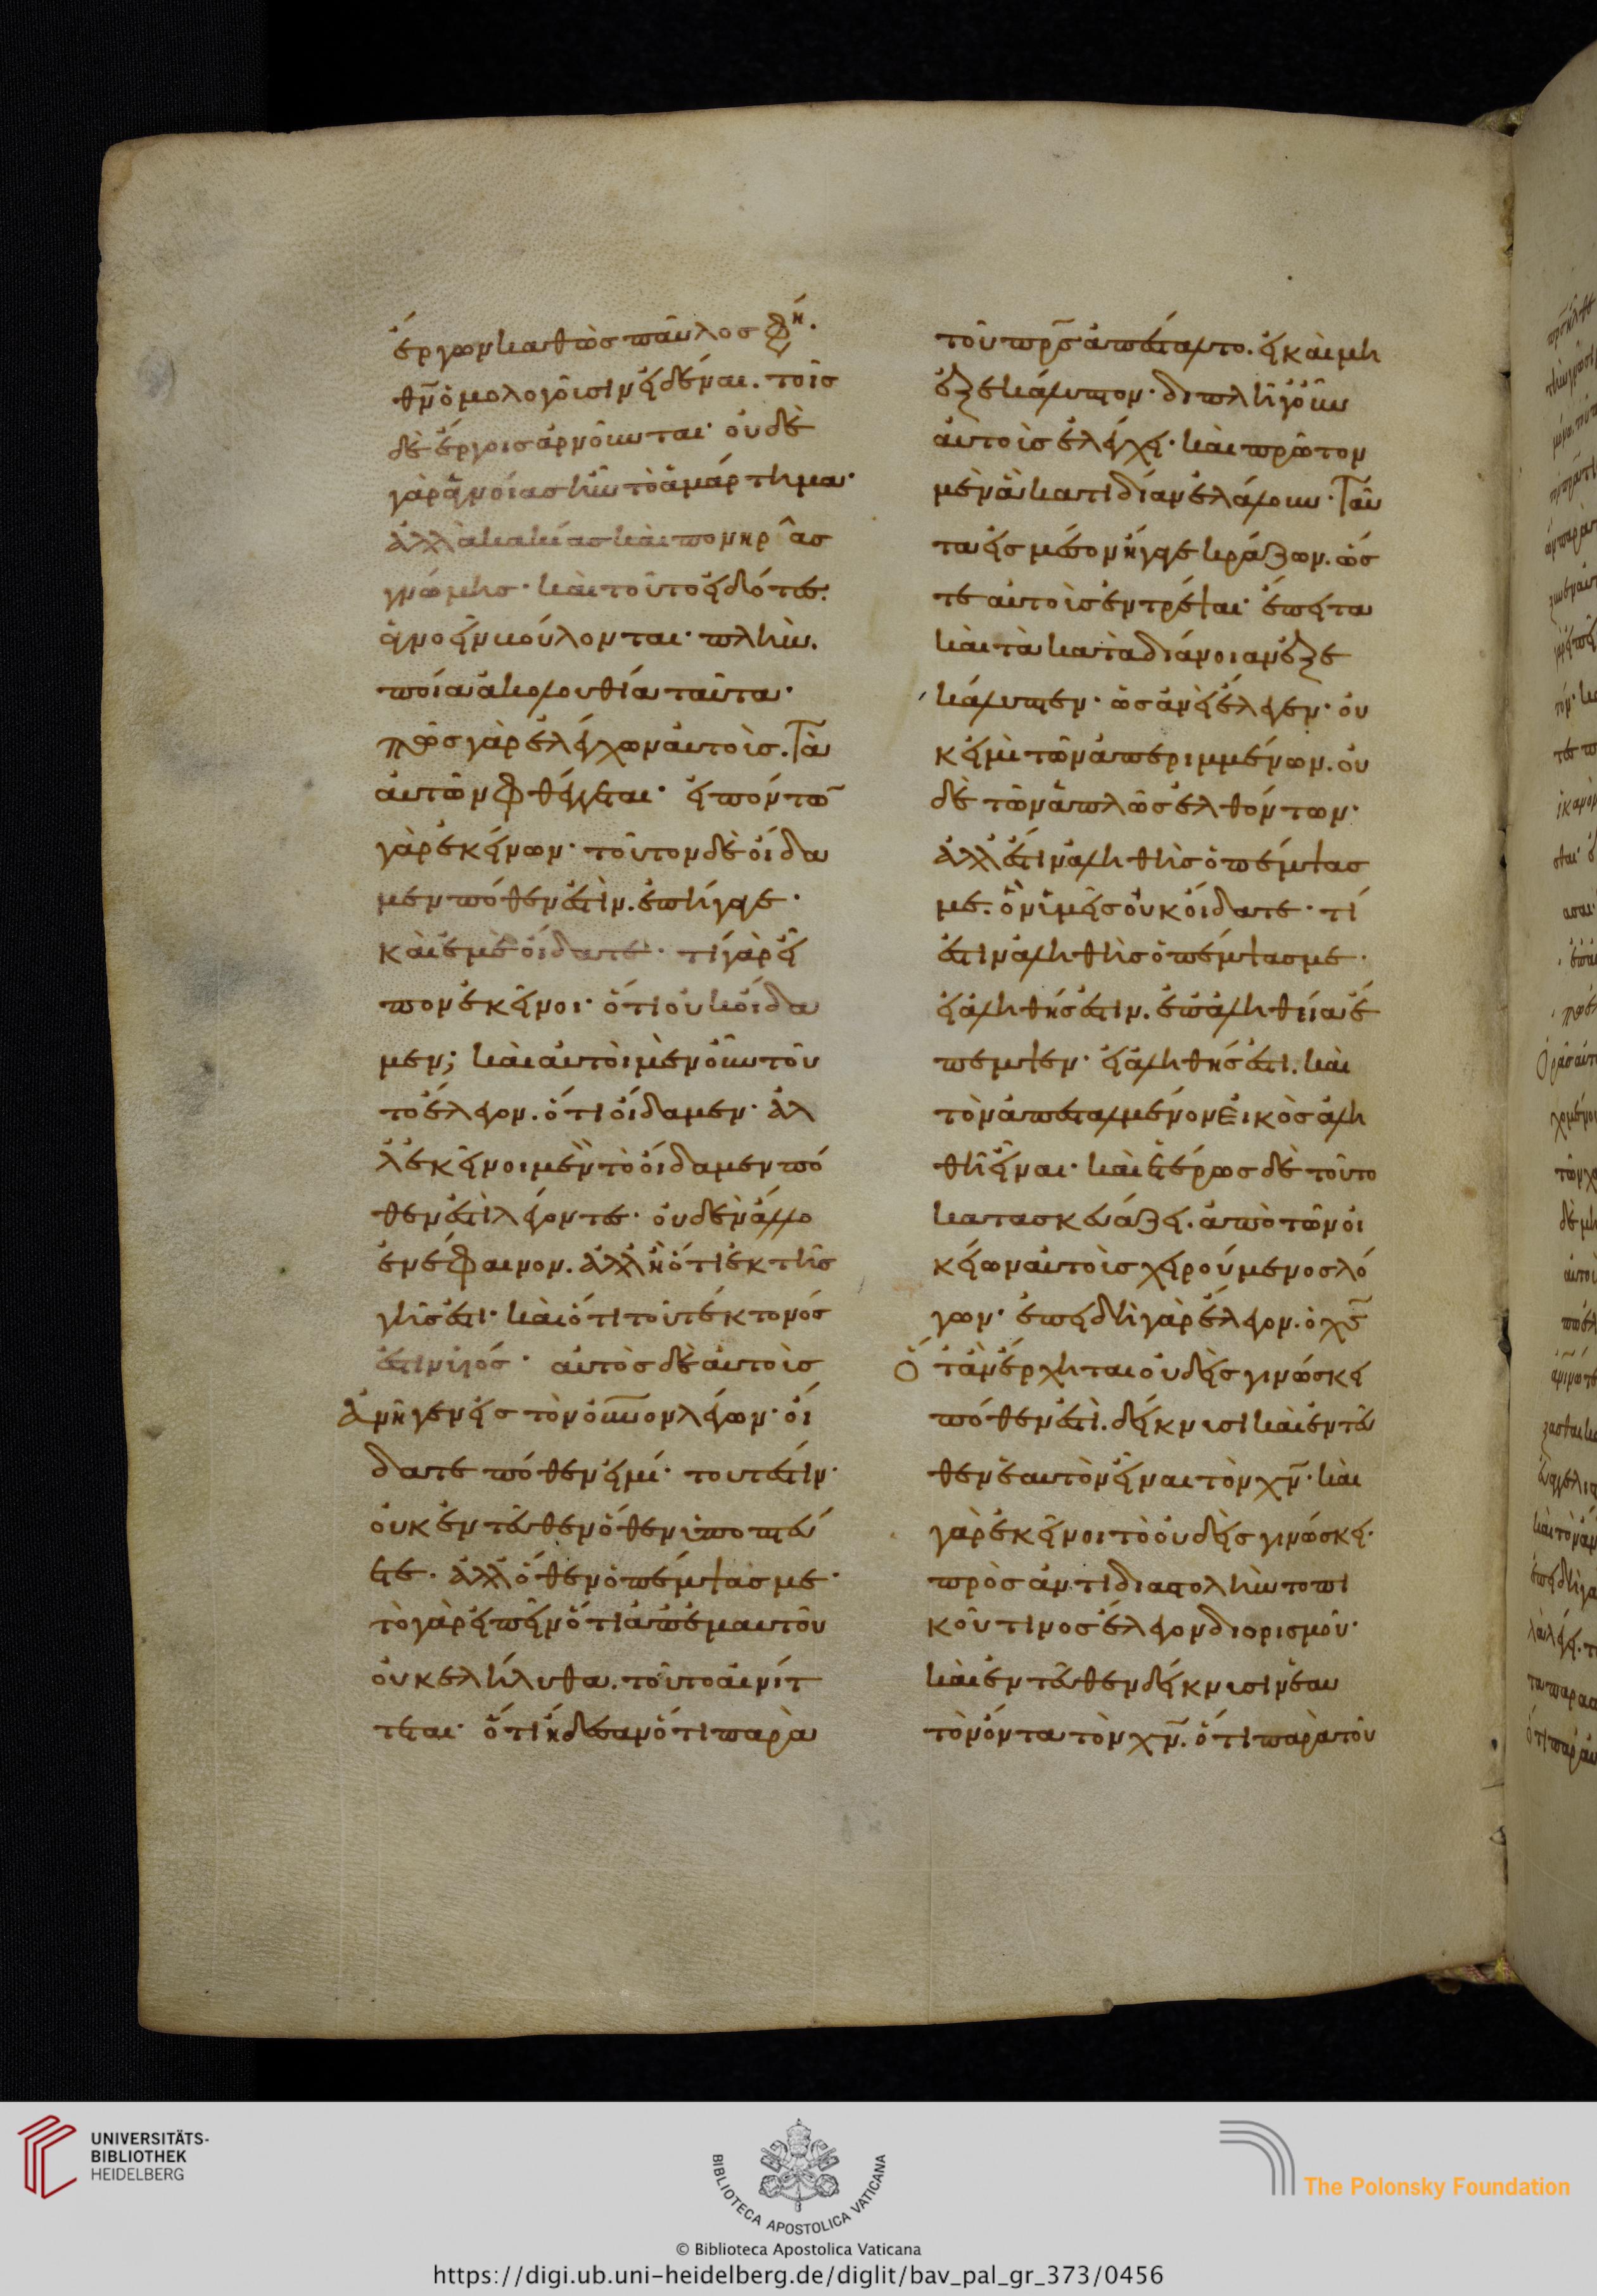 ἔργων καθὼς παῦλος φη.
θν ὁμολογοῦσιν εἰδέναι. τοῖς
δὲ ἔργοις ἀρνοῦνται· οὐδὲ
γὰρ ἀγνοίας ἦν τὸ ἁμάρτημα·
ἀλλὰ κακίας καὶ πονηρίας
γνώμης· καὶ τοῦτο εἰδότες.
ἀγνοεῖν βούλονται· πλὴν.
ποία ἀκολουθία ταῦτα·
πῶς γὰρ ἐλέγχων αὐτοὺς. τὰ
αὐτῶν φθέγγεται· εἰπόντω
γὰρ ἐκείνων· τοῦτον δὲ οἴδα
μεν πόθεν ἐστὶν. ἐπήγαγε·
κἀμὲ οἴδατε· τί γὰρ εἶ
πον ἐκεῖνοι· ὅτι οὐκ οἴδα
μεν; καὶ αὐτοὶ μὲν οὖν τοῦ
το ἔλεγον. ὅτι οἴδαμεν· ἀλ
λ' ἐκεῖνοι μὲν τὸ οἴδαμεν πό
θεν ἐστὶ λέγοντες· οὐδὲν ἄλλο
ἐνέφαινον. ἀλλ' ἢ ὅτι ἐκ τῆς
γῆς ἐστι· καὶ ὅτι τοῦ τέκτονός
ἐστιν υἱός· αὐτὸς δὲ αὐτοὺς
ἀνῆγεν εἰς τὸν οὐνον λέγων· οἴ
δατε πόθεν εἰμί· τουτέστιν·
οὐκ ἐντεῦθεν ὅθεν ὑποπτεύ
ετε. ἀλλ' ὅθεν ὁ πέμψας με·
τὸ γὰρ εἰπεῖν ὅτι ἀπ' ἐμαυτοῦ
οὐκ ἐλήλυθα. τοῦτο αἰνίτ
τεται· ὅτι ἤδεσαν ὅτι παρὰ
τοῦ πρς ἀπέσταλτο. εἰ καὶ μὴ
ἐξεκάλυπτον· διπλῆ γοῦν
αὐτοὺς ἐλέγχει· καὶ πρῶτον
μὲν ἃ κατιδίαν ἐλάλουν. ταῦ
τα εἰς μέσον ἤγαγε κράζων. ὥσ
τε αὐτοὺς ἐντρέψαι· ἔπειτα
καὶ τὰ κατὰ διάνοιαν ἐξε
κάλυπτεν· ὡς ἀνεὶ ἔλεγεν· οὐ
κ εἰμὶ τῶν ἀπεριμμένων. οὐ
δὲ τῶν ἁπλῶς ἐλθόντων·
ἀλλ' ἔστιν ἀληθὴς ὁ πέμψας
με. ὃν ὑμεῖς οὐκ οἴδατε· τί
ἐστιν ἀληθὴς ὁ πέμψας με·
εἰ ἀληθής ἐστιν. ἐπ' ἀληθείᾳ ἔ
πεμψεν· εἰ ἀληθής ἐστι. καὶ
τὸν ἀπεσταλμένον εἰκὸς ἀλη
θῆ εἶναι· καὶ ἑτέρως δὲ τοῦτο
κατασκευάζει. ἀπὸ τῶν οἰ
κείων αὐτοὺς χειρούμενος λό
γων· ἐπειδὴ γὰρ ἔλεγον. ὁ χς
ὅταν ἔρχηται οὐδεὶς γινώσκει
πόθεν ἐστὶ. δείκνυσι καὶ ἐντεῦ
θεν ἑαυτὸν εἶναι τὸν χν· καὶ
γὰρ ἐκεῖνοι τὸ οὐδεὶς γινώσκει·
πρὸς ἀντιδιαστολὴν τοπι
κοῦ τινος ἔλεγον διορισμοῦ·
καὶ ἐντεῦθεν δείκνυσιν ἑαυ
τὸν ὄντα τὸν χν. ὅτι παρὰ τοῦ
UNIVERSITÄTS-
BIBLIOTHEK
HEIDELBERG
BIBLIOTECA APOSTOLICA VATICANA
The Polonsky Foundation
© Biblioteca Apostolica Vaticana
https://digi.ub.uni-heidelberg.de/diglit/bav_pal_gr_373/0456